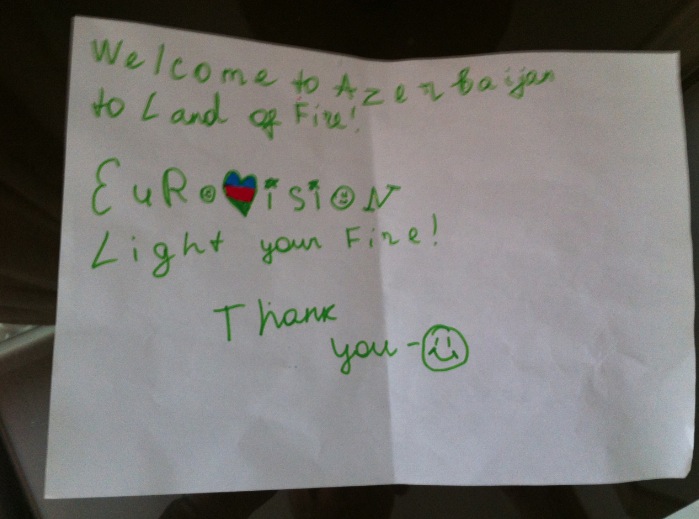 Welcome to Azerbaijan
to Land of Fire!
EuRovisioN
Light your Fire!
Thank
you - ☺